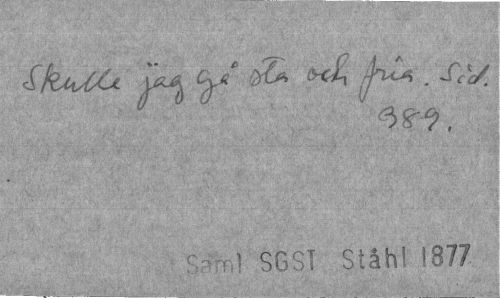 Skulle jag gå sta och fria. Sid.
389.
Saml SGST Ståhl 1877